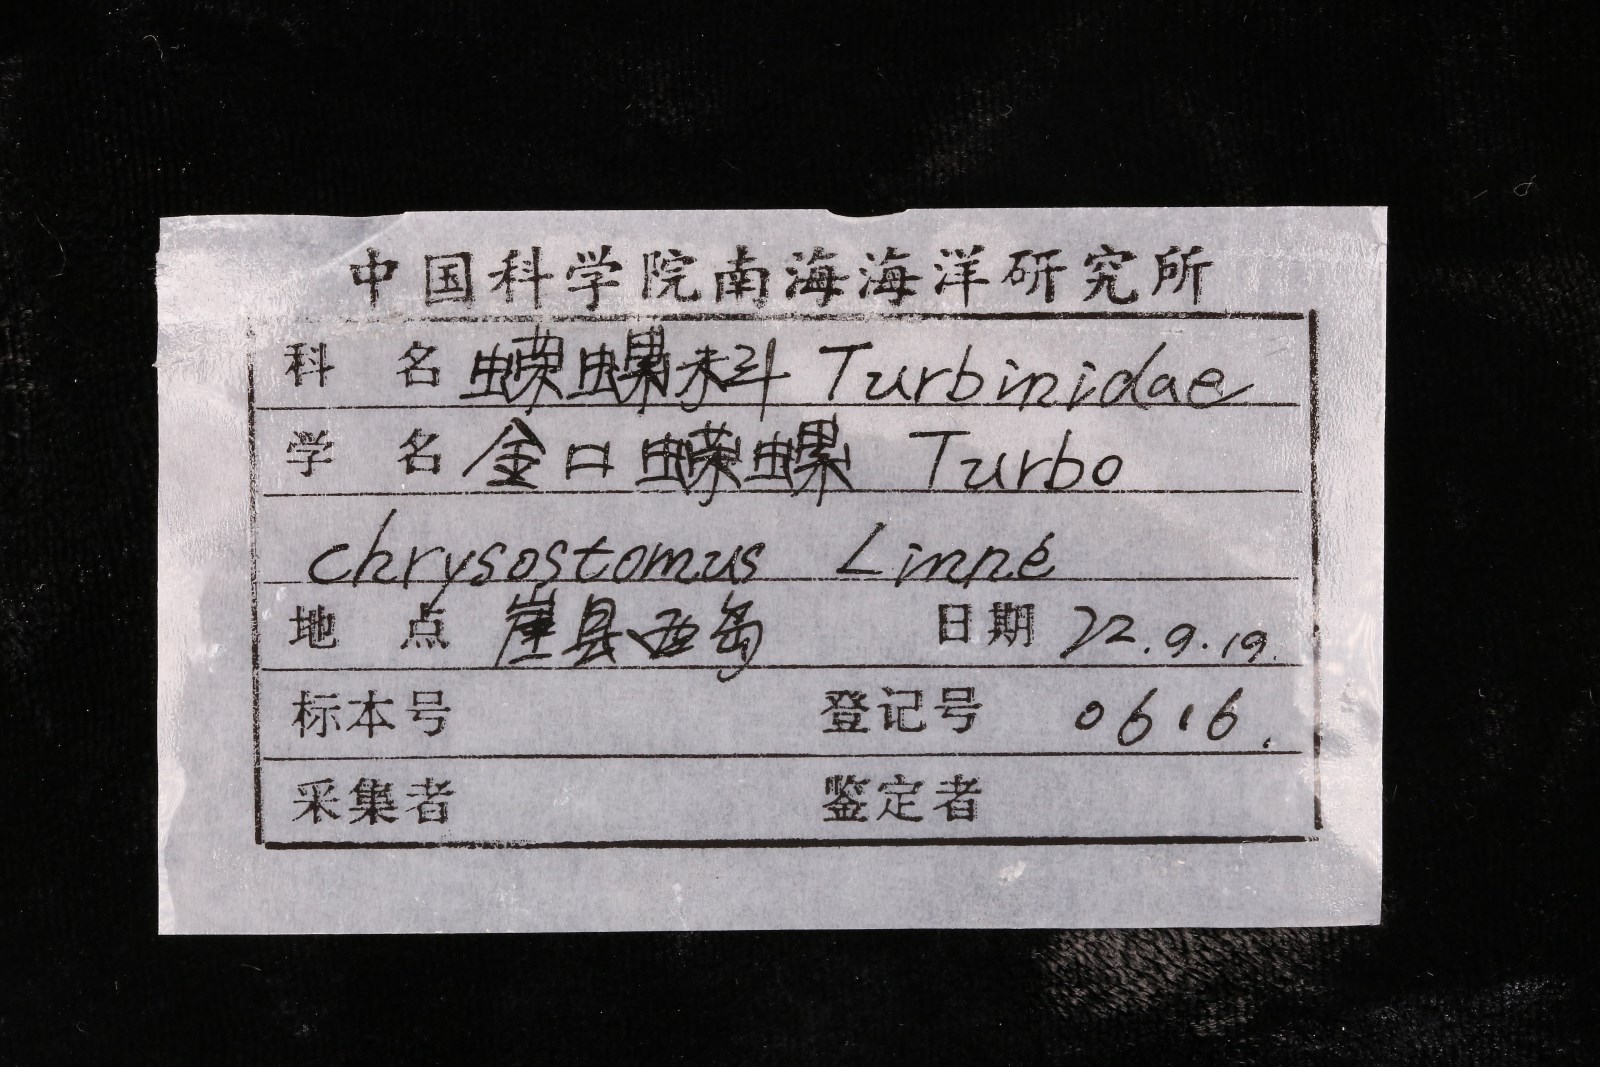 中国科学院南海海洋研究所
科 名 蝾螺科 Turbinidae
学 名 金口蝾螺 Turbo
chrysostomus Linné
地 点 崖县西岛 日期 22.9.19.
标本号 登记号 0616.
采集者 鉴定者